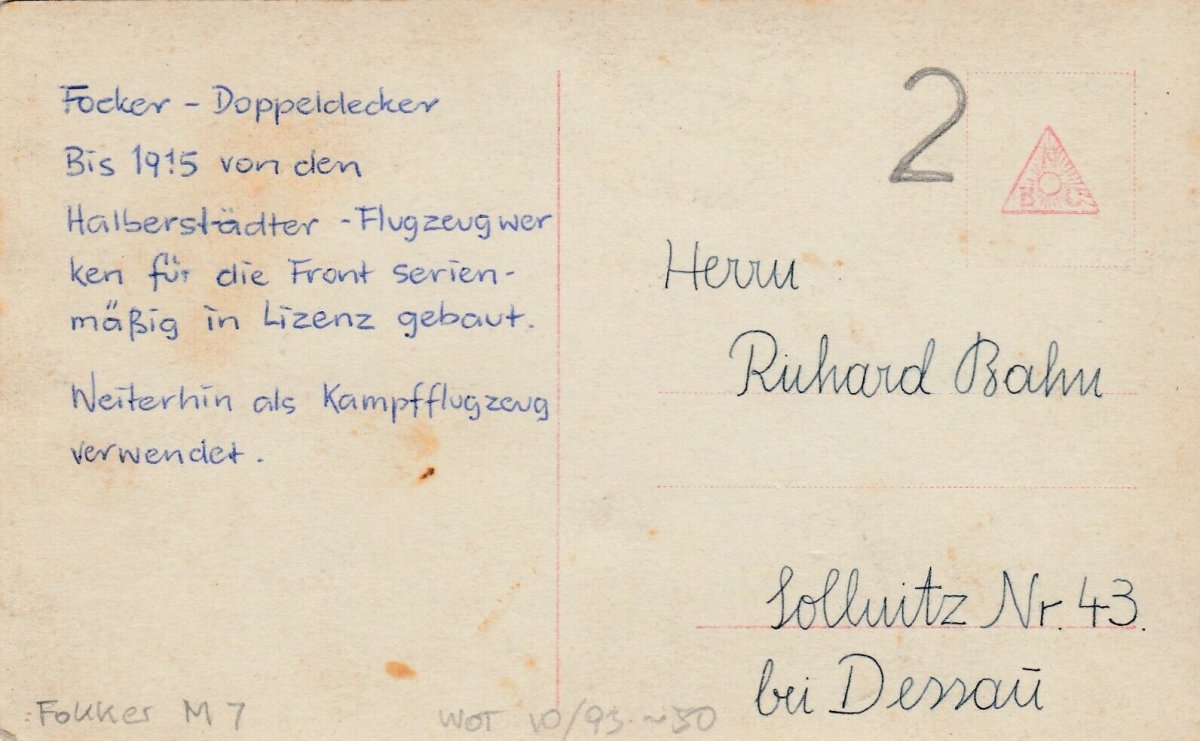 Focker - Doppeldecker
Bis 1915 von den
Halberstädter - Flugzeugwer
ken für die Front serien-
mäßig in Lizenz gebaut.
Weiterhin als Kampfflugzeug
verwendet.
Fokker M 7
2
B C
Herrn
Richard Bahn
Sollnitz Nr. 43.
bei Dessau
WOT 10/93 ~ 50